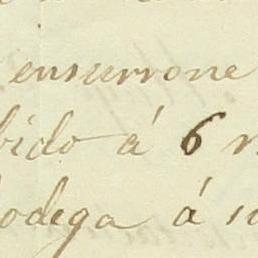 ensurrone
bido á 6
bodega á